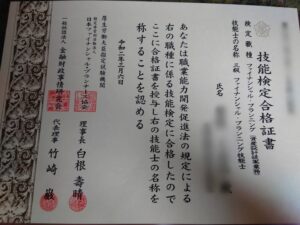 技能検定合格証書
検定職種 ファイナンシャル・プランニング(資産設計提案業務)
技能士の名称 三級 ファイナンシャル・プランニング技能士
氏名
あなたは職業能力開発促進法の規定による
右の職種に係る技能検定に合格したので
ここに合格証書を授与し右の技能士の名称を
称することを認める
令和二年三月六日
厚生労働大臣指定試験機関
日本ファイナンシャル・プランナーズ協会
理事長 白根壽晴
一般社団法人 金融財政事情研究会
代表理事 竹崎巌